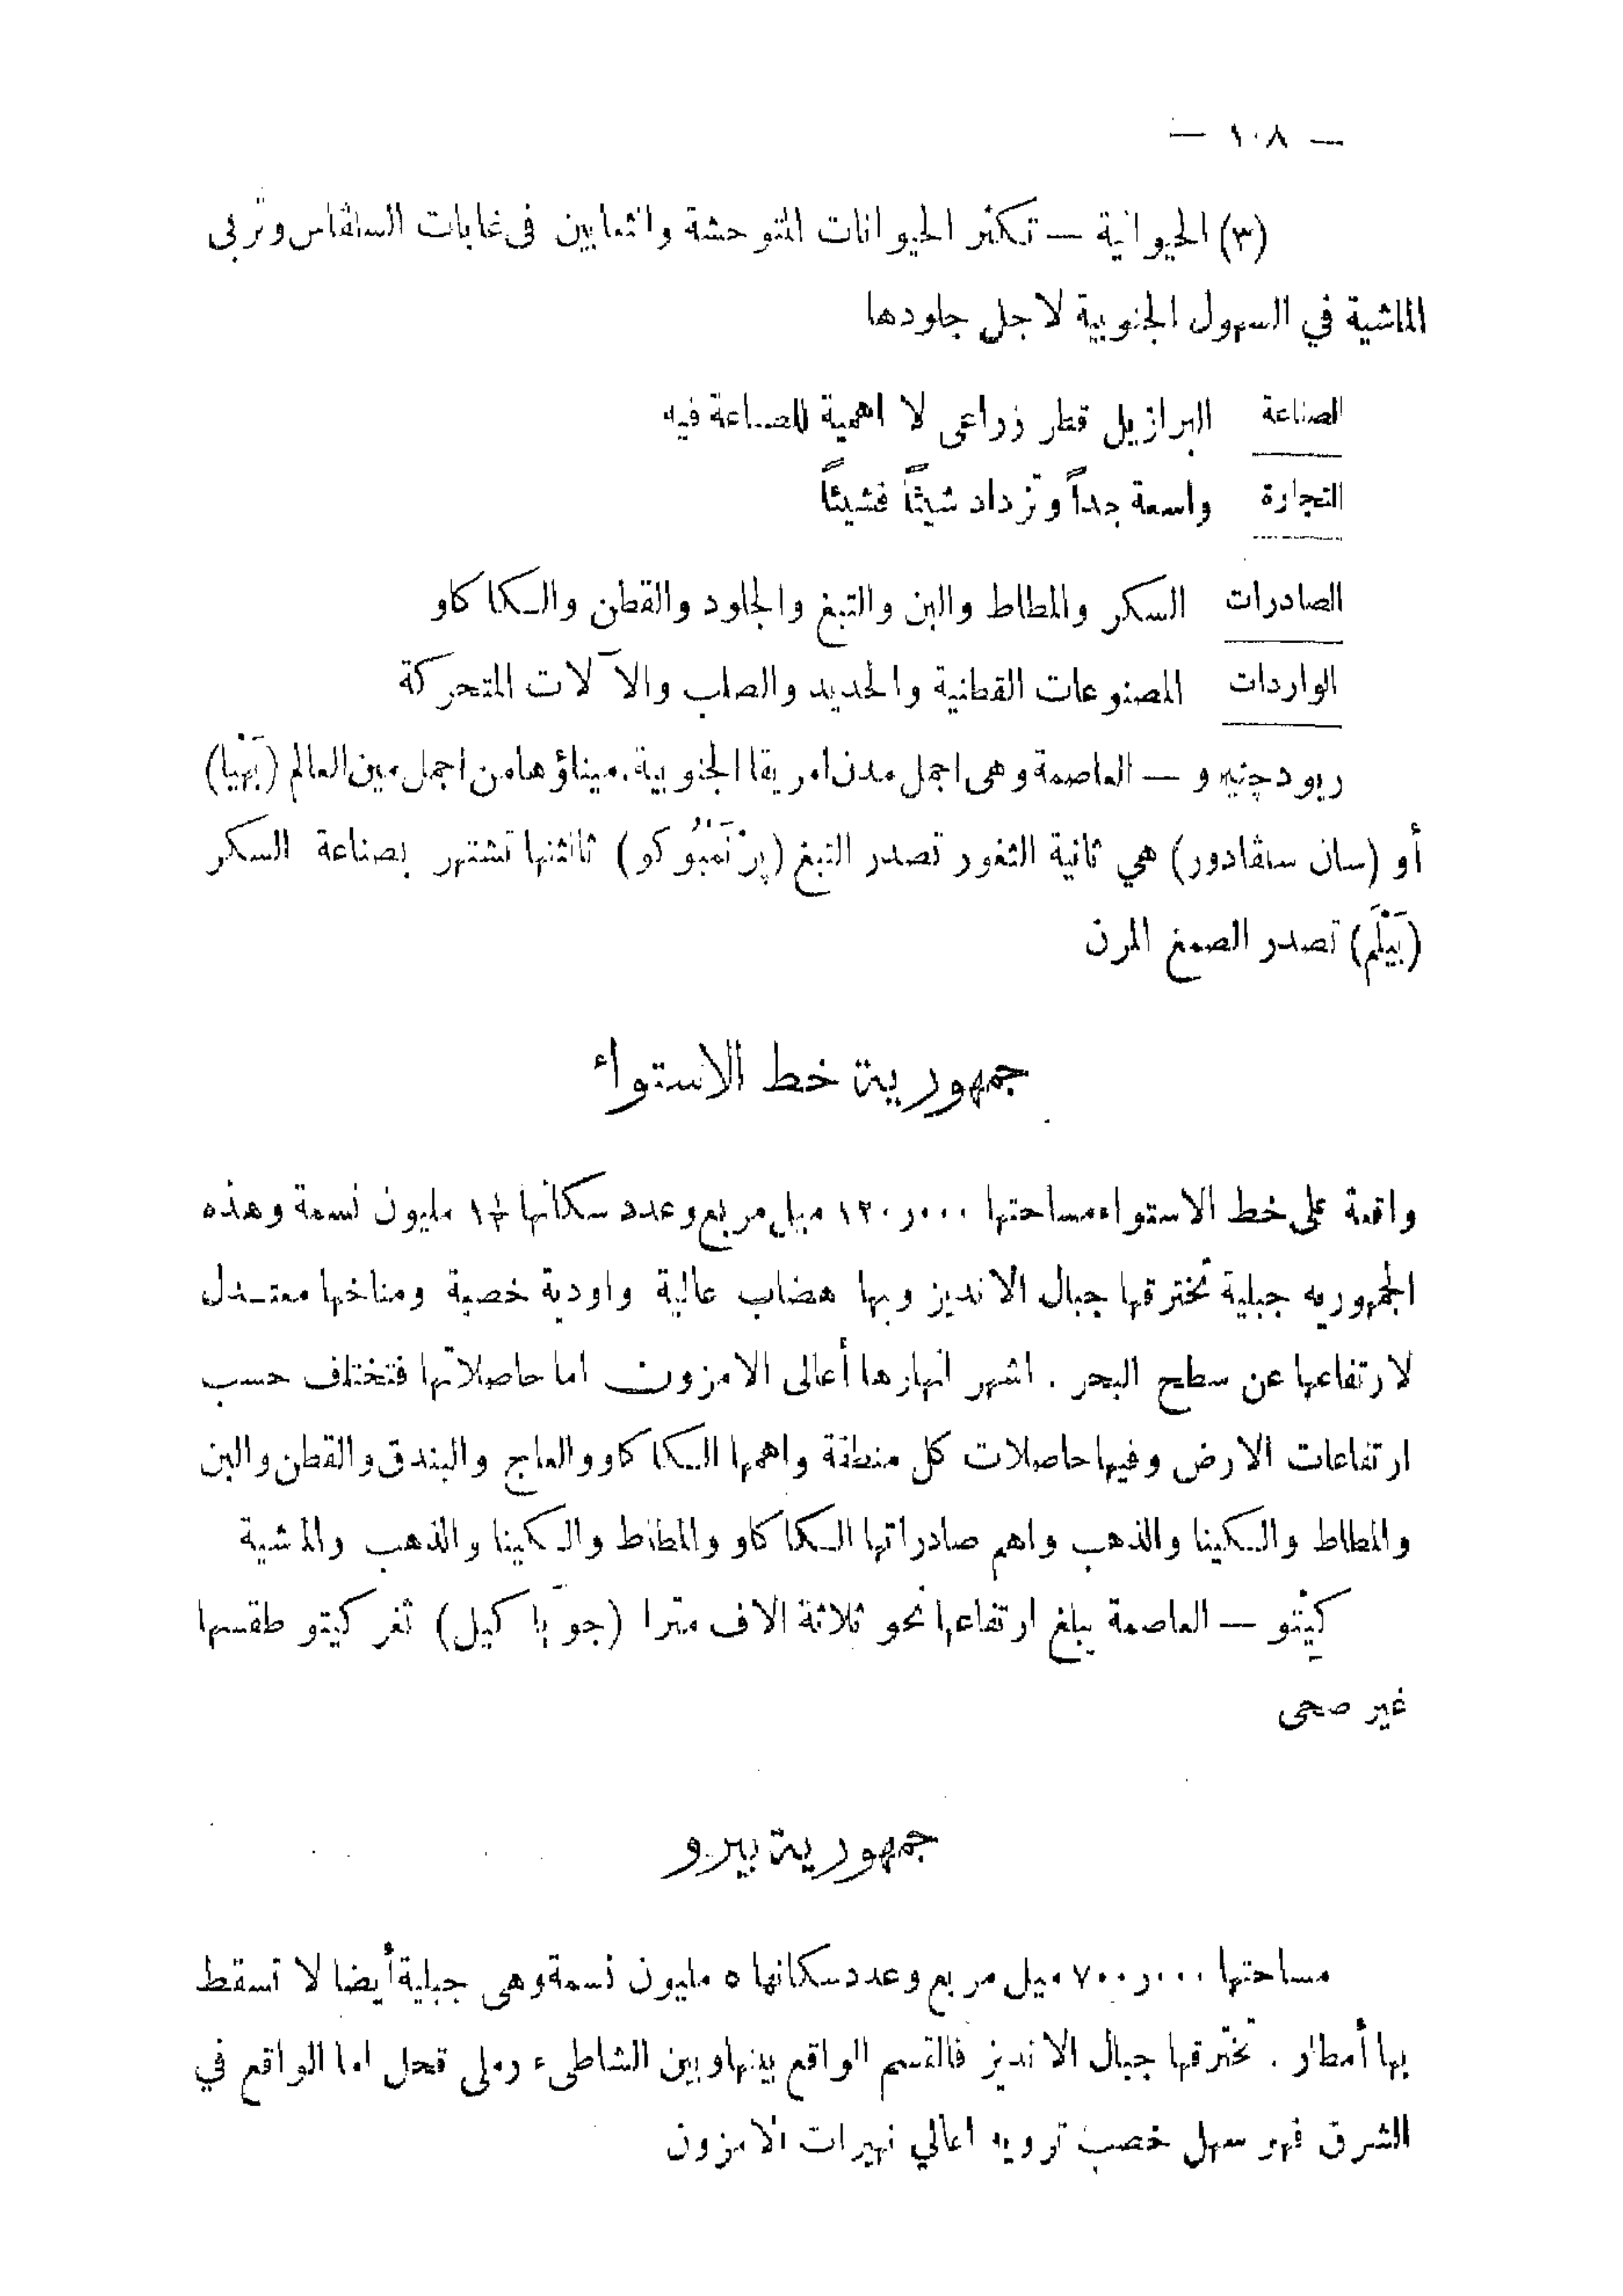 — ١٠٨ —
(٣) الحيوانية — تكثر الحيوانات المتوحشة والثعابين فى غابات السلڤاس وتربى
الماشية في السهول الجنوبية لاجل جلودها
الصناعة البرازيل قطر زراعى لا اهمية للصناعة فيه
التجارة واسعة جداً وتزداد شيئاً فشيئاً
الصادرات السكر والمطاط والبن والتبغ والجلود والقطن والكاكاو
الواردات المصنوعات القطنية والحديد والصلب والآلات المتحركة
ريودچنيرو — العاصمة وهى اجمل مدن امريقا الجنوبية. ميناؤها من اجمل مين العالم (بَهْيا)
أو (سان سلڤادور) هي ثانية الثغور تصدر التبغ (پرْنَمْبُوكو) ثالثتها تشتهر بصناعة السكر
(بَيْلَم) تصدر الصمغ المرن
جمهورية خط الاستواء
واقعة على خط الاستواء مساحتها ١٢٠ر٠٠٠ ميل مربع وعدد سكانها ١½ مليون نسمة وهذه
الجمهوريه جبلية تخترقها جبال الانديز وبها هضاب عالية واودية خصبة ومناخها معتدل
لارتفاعها عن سطح البحر . اشهر انهارها أعالى الامزون اما حاصلاتها فتختلف حسب
ارتفاعات الارض وفيها حاصلات كل منطقة واهمها الكاكاو والعاج والبندق والقطن والبن
والمطاط والكينا والذهب واهم صادراتها الكاكاو والمطاط والكينا والذهب والماشية
كِيْتو — العاصمة يبلغ ارتفاعها نحو ثلاثة الاف مترا (جوَيَا كيل) ثغر كيتو طقسها
غير صحى
جمهورية بيرو
مساحتها ٧٠٠ر٠٠٠ ميل مربع وعدد سكانها ٥ مليون نسمة وهى جبلية أيضا لا تسقط
بها أمطار . تخترقها جبال الانديز فالقسم الواقع بينها وبين الشاطىء رملى قحل اما الواقع في
الشرق فهو سهل خصب ترويه اعالي نهيرات الامزون